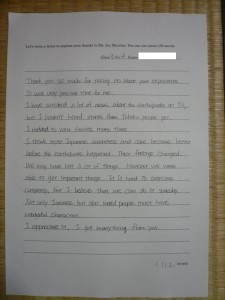 Let's write a letter to express your thanks to Mr. Jay Meucher. You can use about 100 words.
Thank you so much for telling us about your experience.
It was very precious time for me.
I have watched a lot of news about the earthquake on TV,
but I haven't heard stories from Tohoku people yet.
I noticed to your stories many times.
I think most Japanese awareness and
before the earthquake happened. Their feelings changed.
We may have lost a lot of things. However we were
able to get important things. It is hard to overcome
completely, but I believe that we can do it someday.
Not only Japanese but also world people must have
wonderful characters.
I appreciate it, I got everything from you.